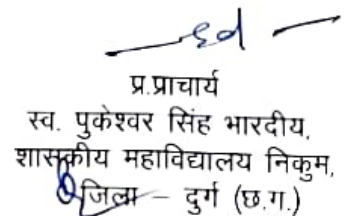 sd
प्र.प्राचार्य
स्व. पुकेश्वर सिंह भारदीय,
शासकीय महाविद्यालय निकुम,
जिला – दुर्ग (छ.ग.)